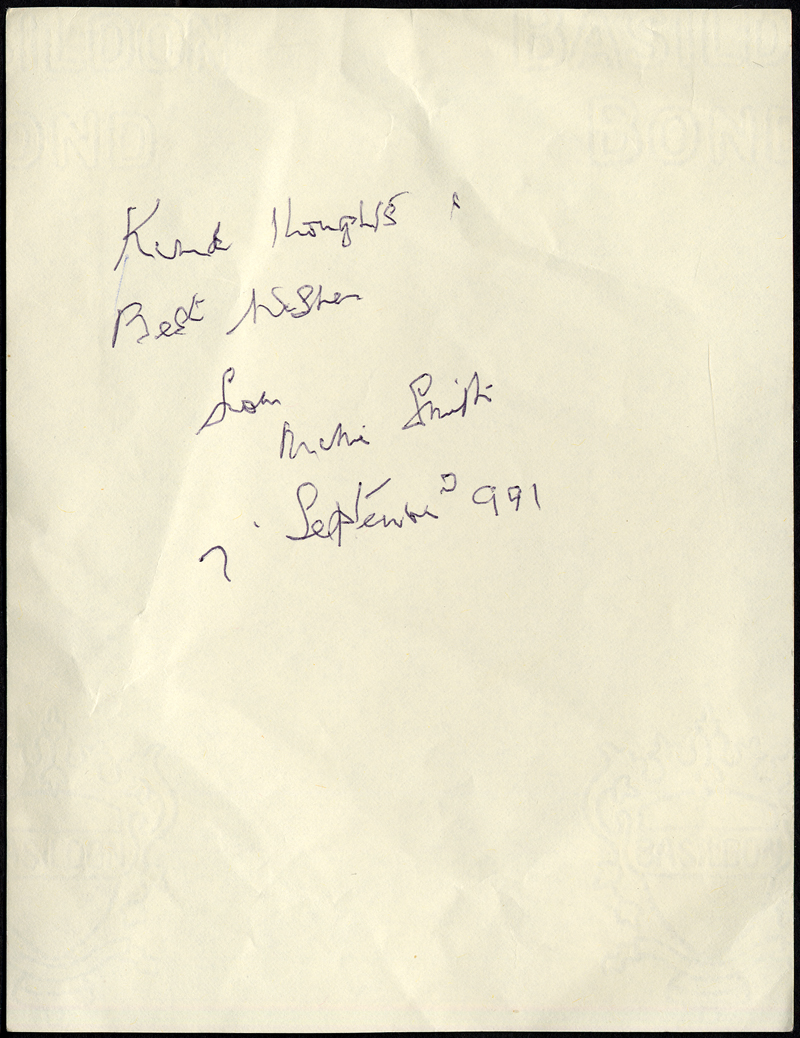 Kind thoughts &
Best Wishes
from
Smith
7 September 1991